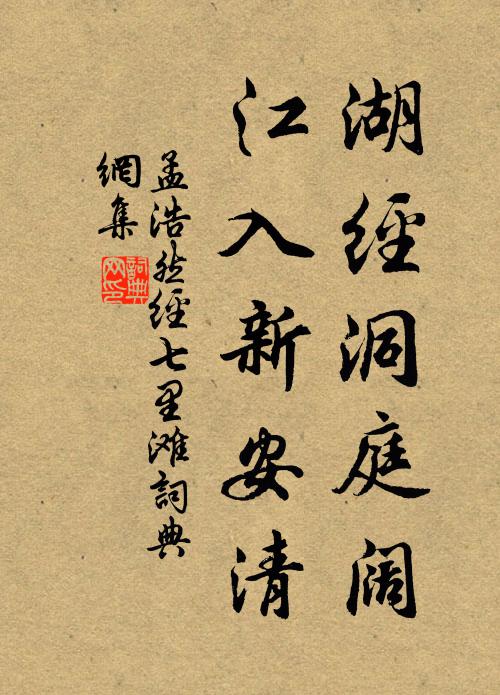 湖經洞庭阔
江入新安清
孟浩然經七里滩詞典
網集
詞典
网印